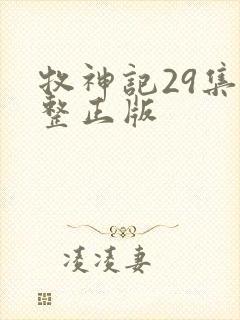 牧神记29集
整正版
凌凌妻